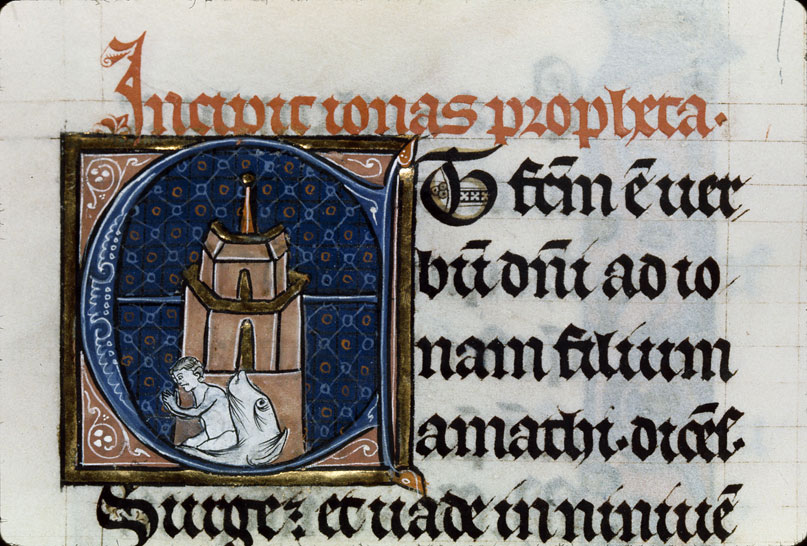 Incipit ionas propheta.
T fc̄m ē uer
bū dn̄i ad io
nam filium
amathi. dicēs.
Surge: et uade in niniuē